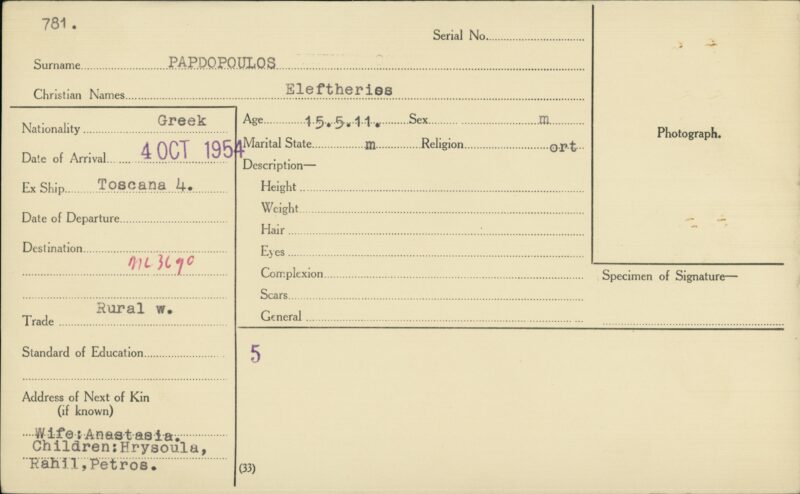 781.
Serial No.
Surname PAPDOPOULOS
Christian Names Eleftherios
Nationality Greek
Date of Arrival 4 OCT 1954
Ex Ship Toscana 4.
Date of Departure
Destination
Trade Rural w.
Standard of Education
Address of Next of Kin
(if known)
Wife:Anastasia.
Children:Hrysoula,
Rahil,Petros.
Age 15.5.11. Sex m
Marital State m Religion ort
Description—
Height
Weight
Hair
Eyes
Complexion
Scars
General
5
(33)
Photograph.
Specimen of Signature—